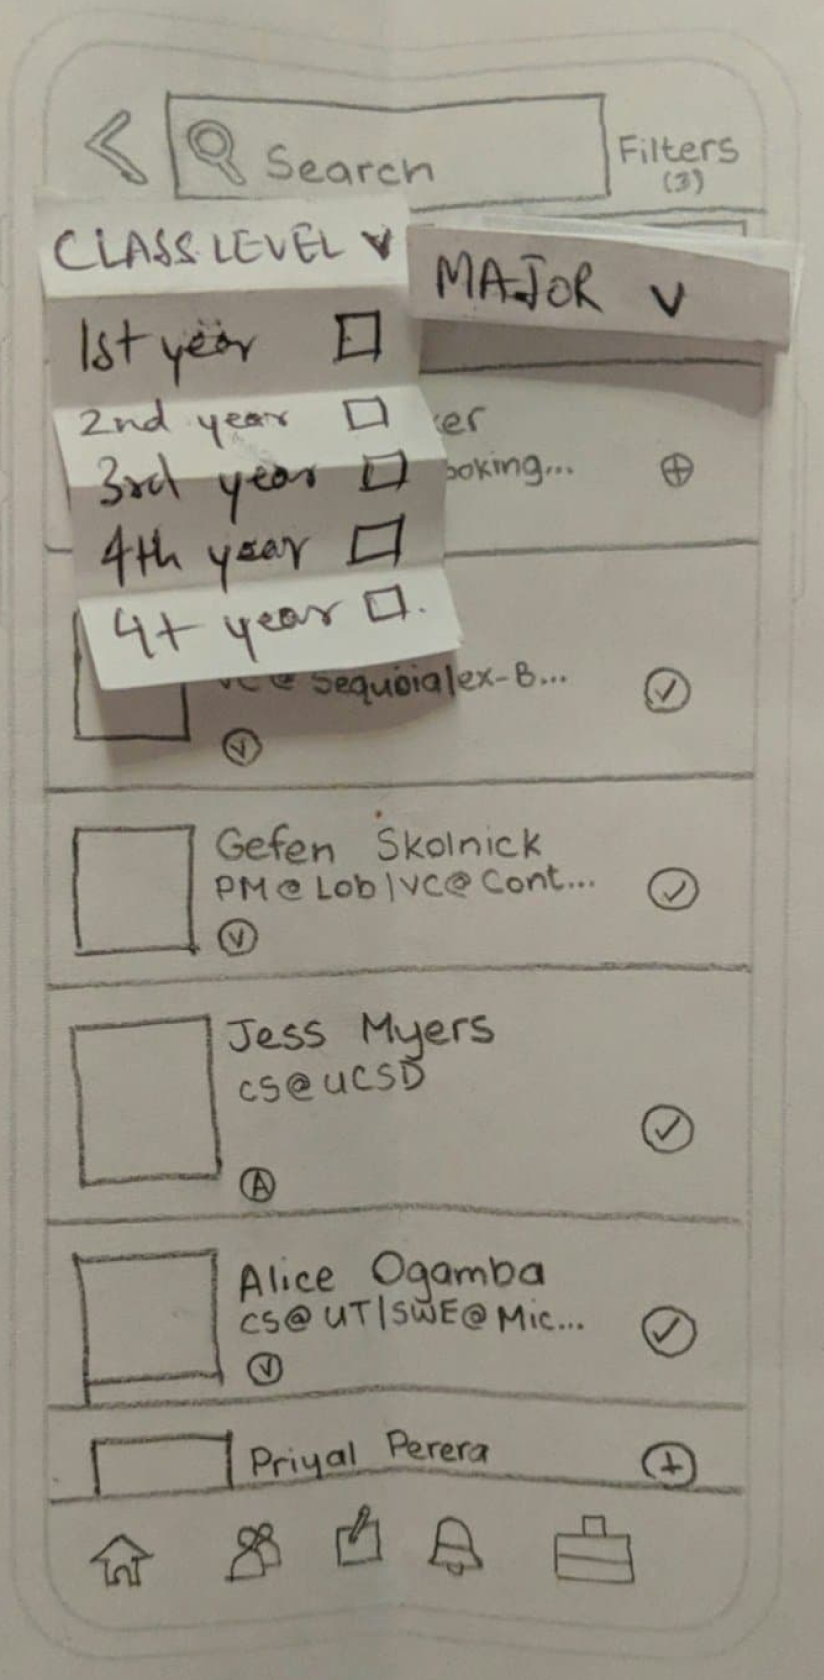 Search
Filters
(3)
CLASS LEVEL
MAJOR
1st year
2nd year
3rd year
4th year
4+ year
Gefen Skolnick
PM@Lob|VC@Cont...
V
Jess Myers
CS@UCSD
A
Alice Ogamba
CS@UT|SWE@Mic...
V
Priyal Perera